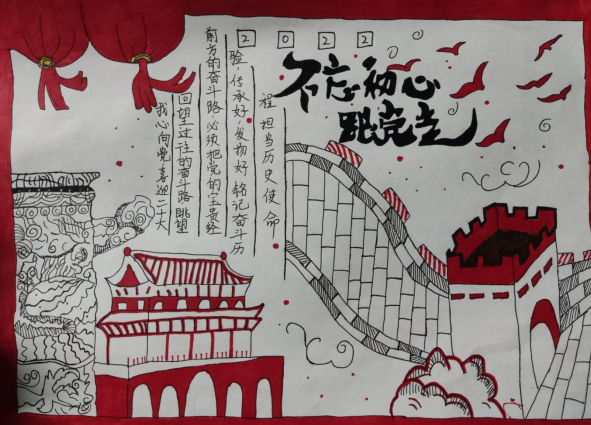 2022
不忘初心
跟党走
我心向党喜迎二十大
回望过往的奋斗路眺望
前方的奋斗路,必须把党的宝贵经
验,传承好,发扬好 铭记奋斗历
程担当历史使命